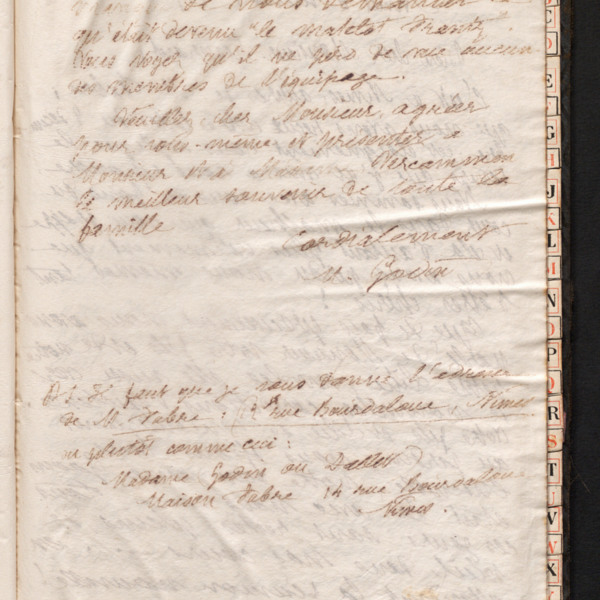 de nous
qu'était devenu le matelot Frantz.
Vous voyez qu'il ne perd de vue aucun
des membres de l'équipage.
Veuillez, cher Monsieur, agréer
pour vous-même et présenter à
Monsieur et à Madame Descammon
le meilleur souvenir de toute la
famille
Cordialement
M. Godin
P.S. Il faut que je vous donne l'adresse
de M. Fabre : 14 rue Bourdaloue, Nimes
ou plutôt comme ceci :
Madame Godin ou Dallet
Maison Fabre 14 rue Bourdaloue
Nimes.
C
D
E
F
G
H
J
K
L
M
N
O
P
Q
R
S
T
U
V
W
X
Y